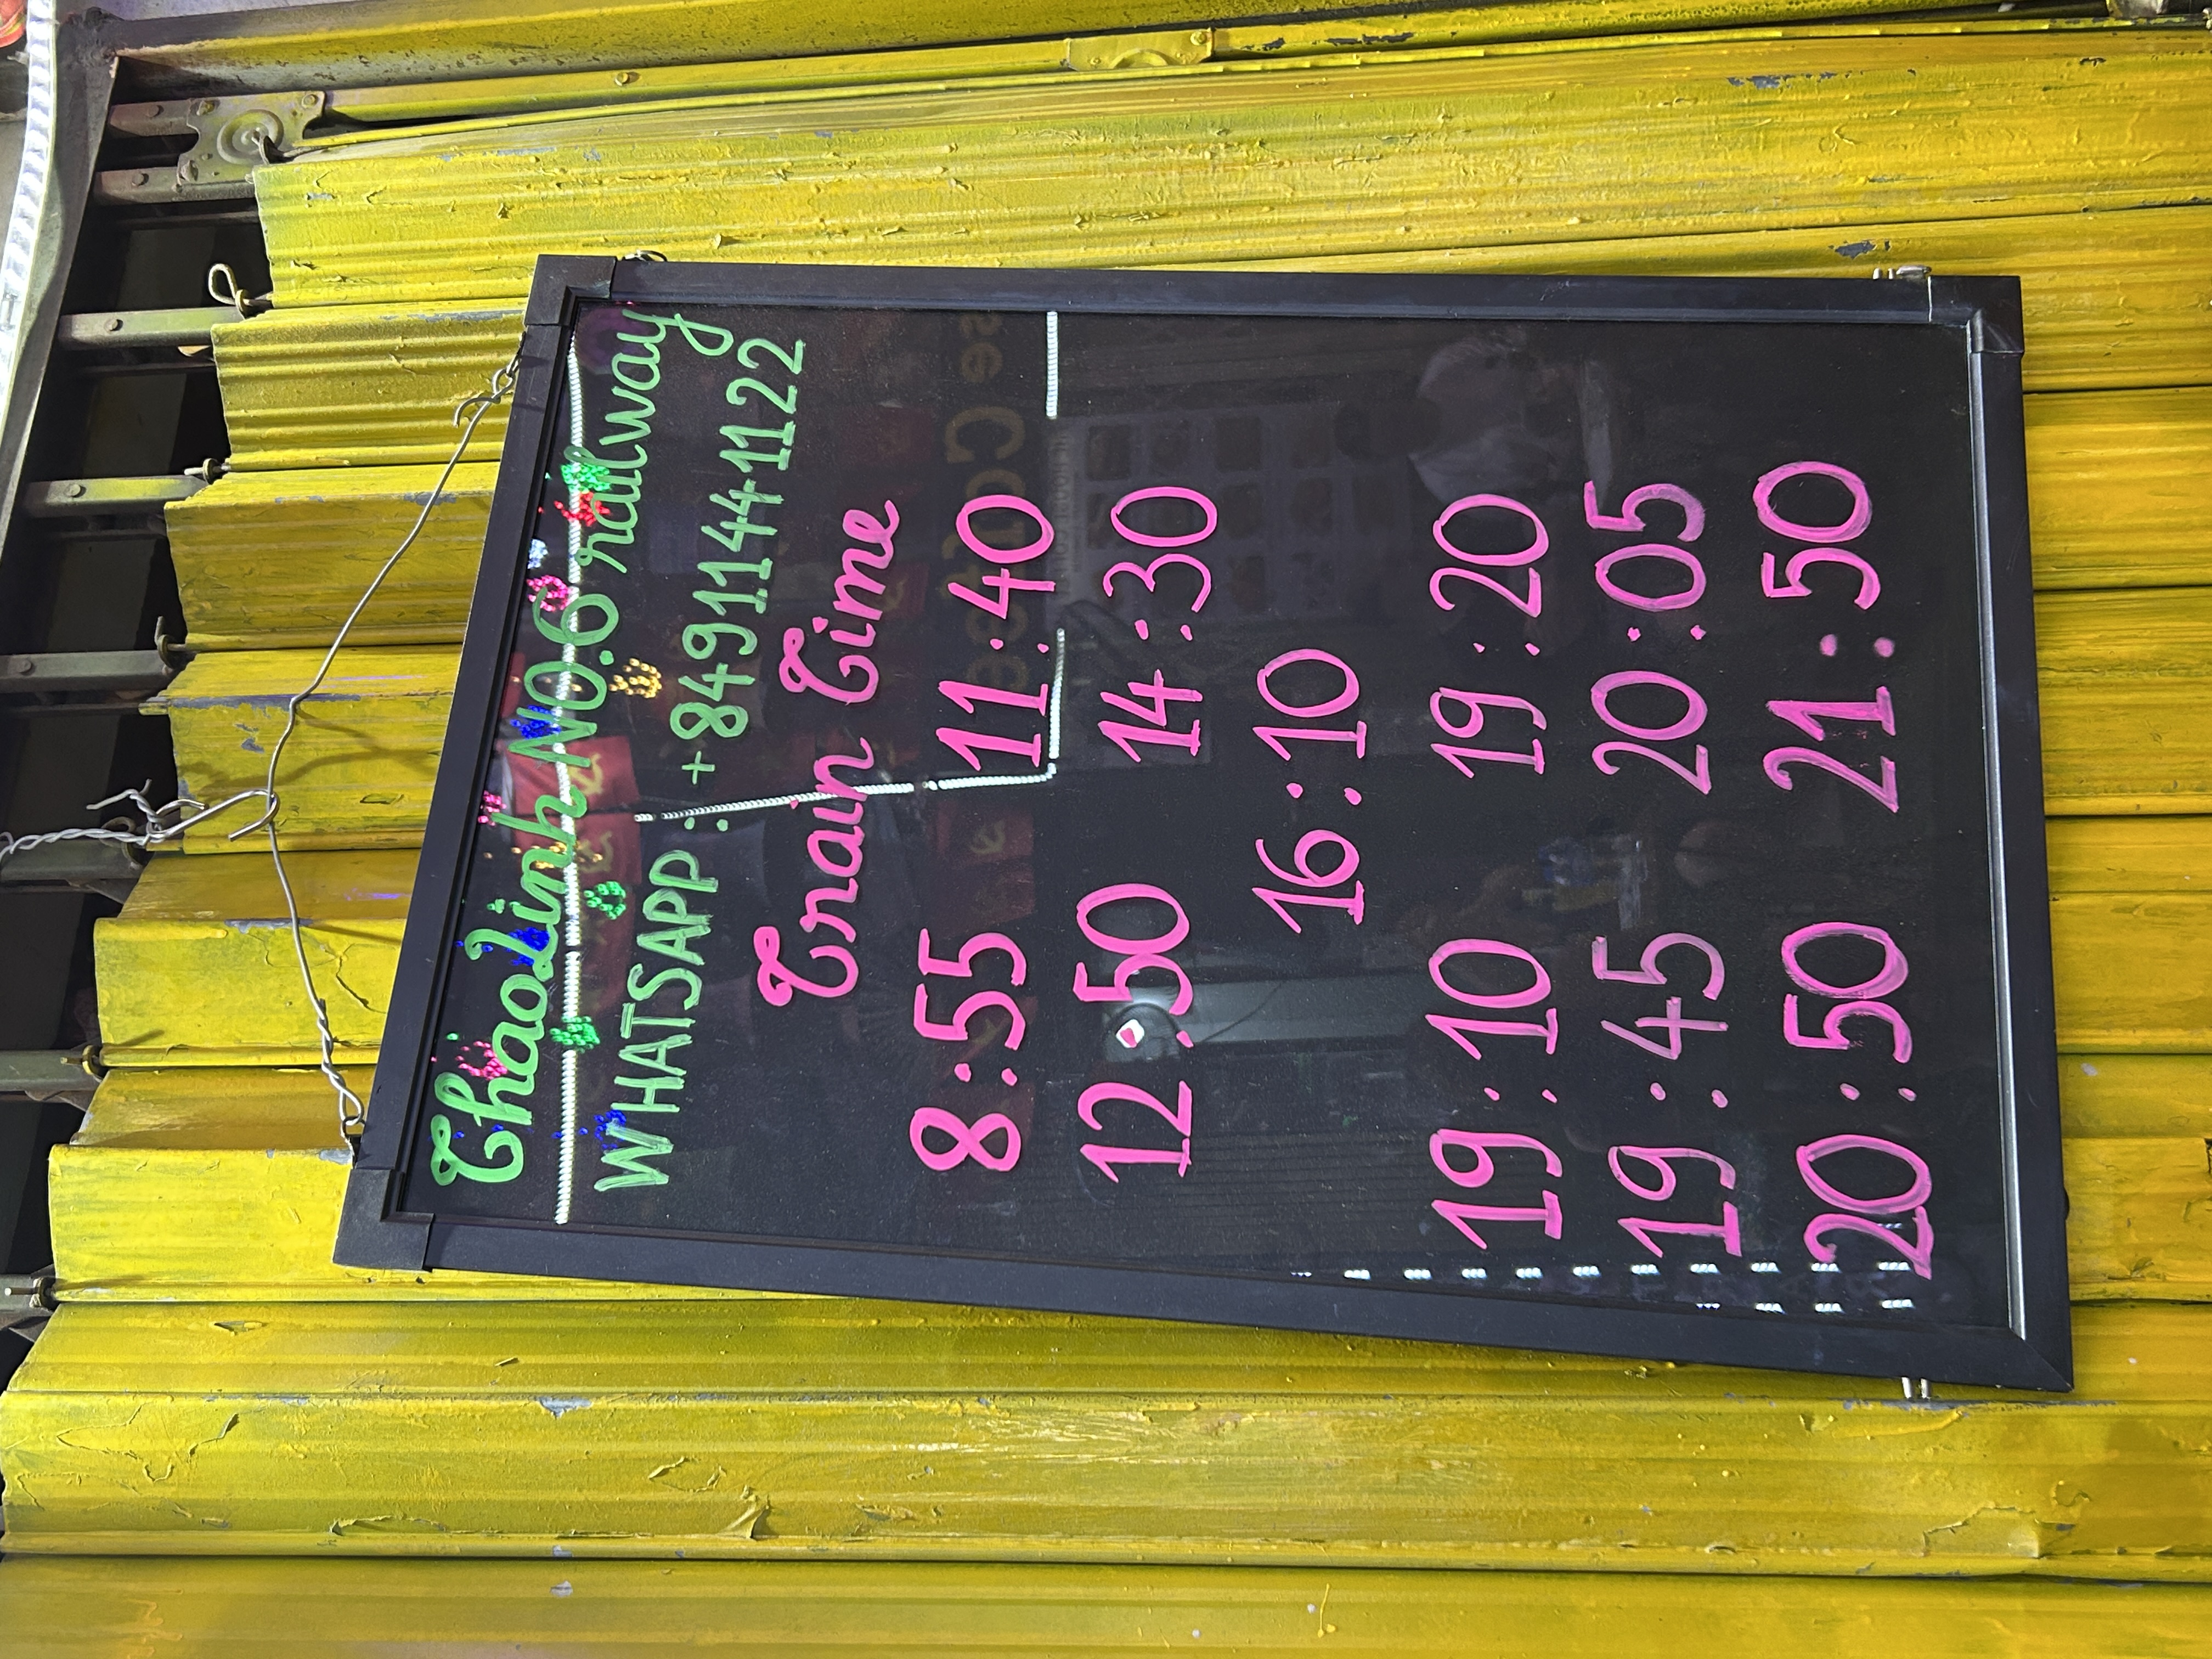 ThaoLinh NO.6 railway
WHATSAPP : +84911441122
Train Time
8:55 11:40
12:50 14:30
16:10
19:10 19:20
19:45 20:05
20:50 21:50